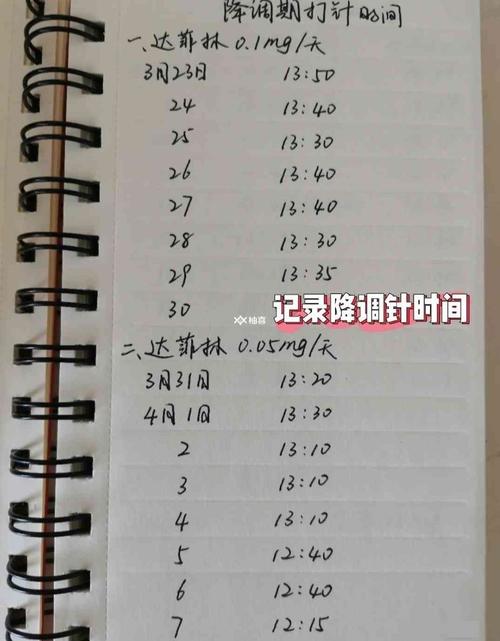 降调期打针时间
一、达菲林 0.1mg/天
3月23日 13:50
24 13:40
25 13:30
26 13:40
27 13:40
28 13:30
29 13:35
30
记录降调针时间
柚喜
二、达菲林 0.05mg/天
3月31日 13:20
4月1日 13:30
2 13:10
3 13:10
4 13:10
5 12:40
6 12:40
7 12:15